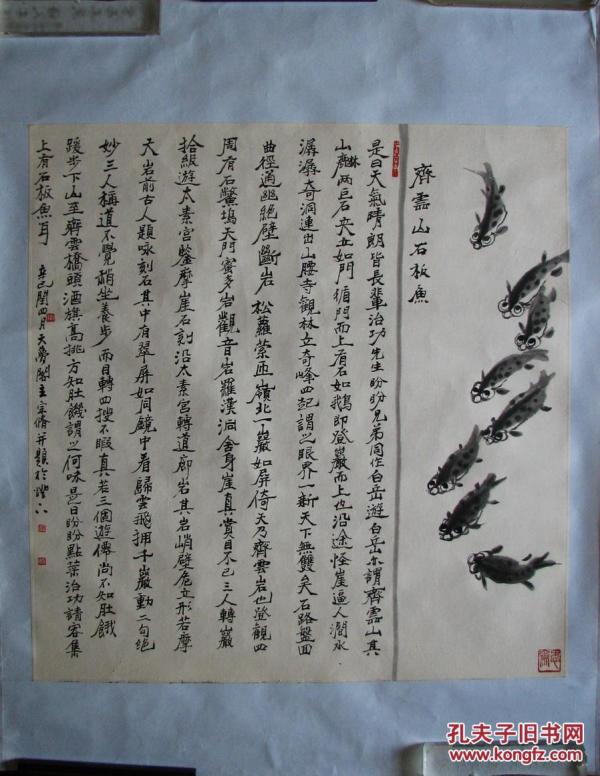 齊雲山石板魚
是日天氣晴朗皆長輩治功先生盼盼兄弟同作白岳遊白岳亦謂齊雲山其
山麓兩巨石夾立如門循門而上有石如鵝即登巖而上也沿途怪崖逼人澗水
潺潺奇洞連出山腰寺觀林立奇峰四起謂之眼界一新天下無雙矣石路盤回
曲徑通幽絕壁斷岩松蘿縈匝嶺北一巖如屏倚天乃齊雲岩也登觀四
周有石鱉塢天門蜜多岩觀音岩羅漢洞舍身崖真賞目不已三人轉巖
拾級遊太素宮鑒摩崖石刻沿太素宮轉道廊岩其岩峭壁危立形若摩
天岩前古人題咏刻石其中有翠屏如同鏡中看歸雲飛擁千巖動二句絕
妙三人稱道不覺稍坐養步而目轉四搜不暇真若三個遊僊尚不知肚餓
踱步下山至齊雲橋頭酒旗高挑方知肚饑謂之何味是日盼盼點菜治功請客集
上有石板魚耳
辛巳閏四月天夢閣主宗脩并題於
孔夫子旧书网
www.kongfz.com